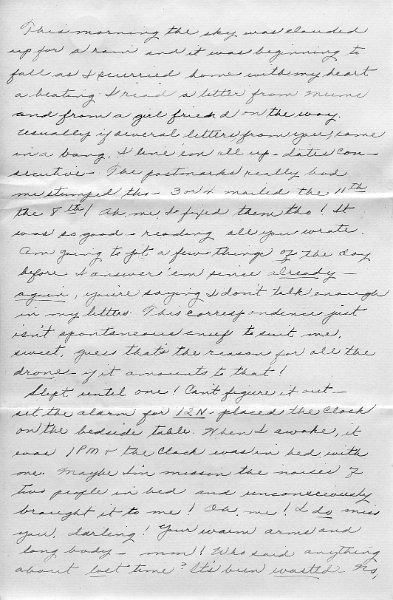 This morning the sky was clouded
up for a rain and it was beginning to
fall as I scurried home with my heart
a beating. I read a letter from Mume
and from a girl friend on the way.
Usually if several letters from you come
in a bang, I line 'em all up - dates con-
secutive - The postmarks really had
me stumped tho - 3 or 4 mailed the 11th
the 8th! Ah me I fixed them tho! It
was so good - reading all you wrote.
Am going to jot a few things of the day
before I answer 'em sense already -
again, you're saying I don't talk enough
in my letters. This correspondence just
isn't spontaneous enuf to suit me,
sweet, guess that's the reason for all the
drone - if it amounts to that!
Slept until one! Can't figure it out -
set the alarm for 12N - placed the clock
on the bedside table. When I awoke, it
was 1PM & the clock was in bed with
me. Maybe I'm missin the noises of
two people in bed and unconsciously
brought it to me! Oh, me! I do miss
you, darling! Your warm arms and
long body - mm! Who said anything
about lost time? It's been wasted. No,